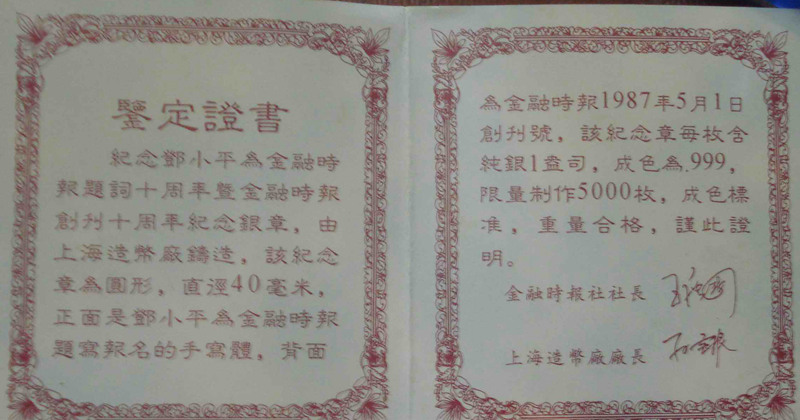 鑒定證書
紀念鄧小平為金融時
報題詞十周年暨金融時報
創刊十周年紀念銀章，由
上海造幣廠鑄造，該紀念
章為圓形，直徑40毫米，
正面是鄧小平為金融時報
題寫報名的手寫體，背面
為金融時報1987年5月1日
創刊號，該紀念章每枚含
純銀1盎司，成色為.999，
限量制作5000枚，成色標
准，重量合格，謹此證
明。
金融時報社社長
上海造幣廠廠長